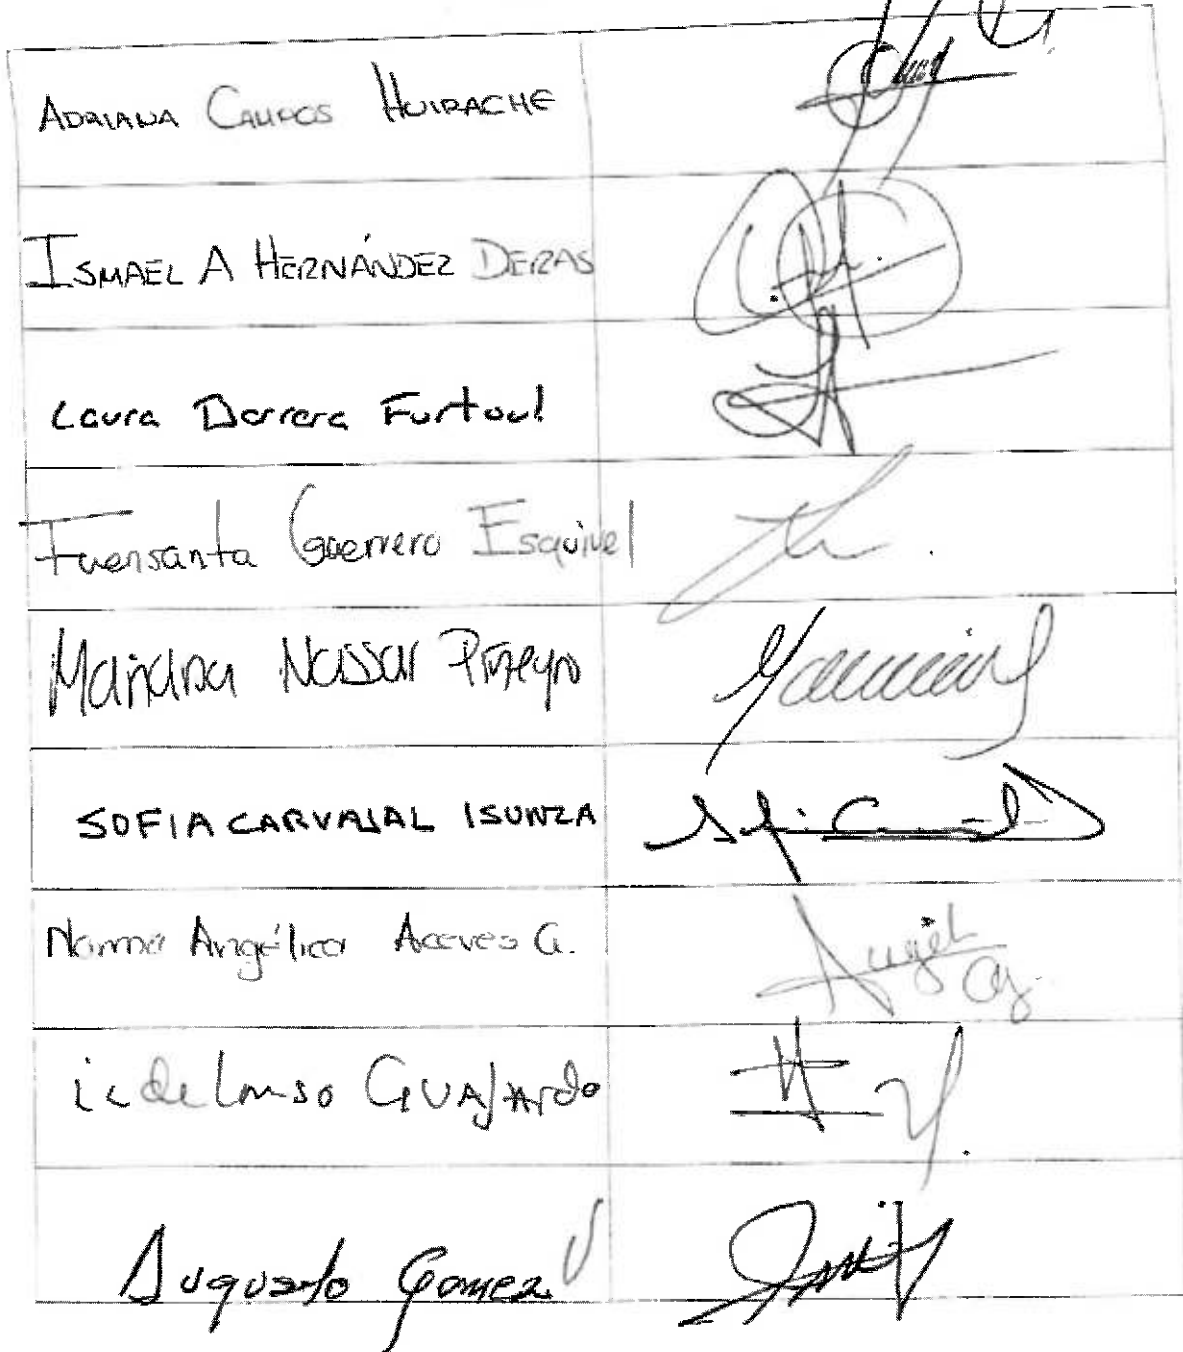 ADRIANA CAMPOS HUIRACHE
ISMAEL A HERNÁNDEZ DERAS
Laura Barrera Furtoul
Fuensanta Guerrero Esquivel
Mariana Nassar Piñeyro
SOFIA CARVAJAL ISUNZA
Norma Angélica Aceves G.
ildefonso GUAJARDO
Augusto Gomez V